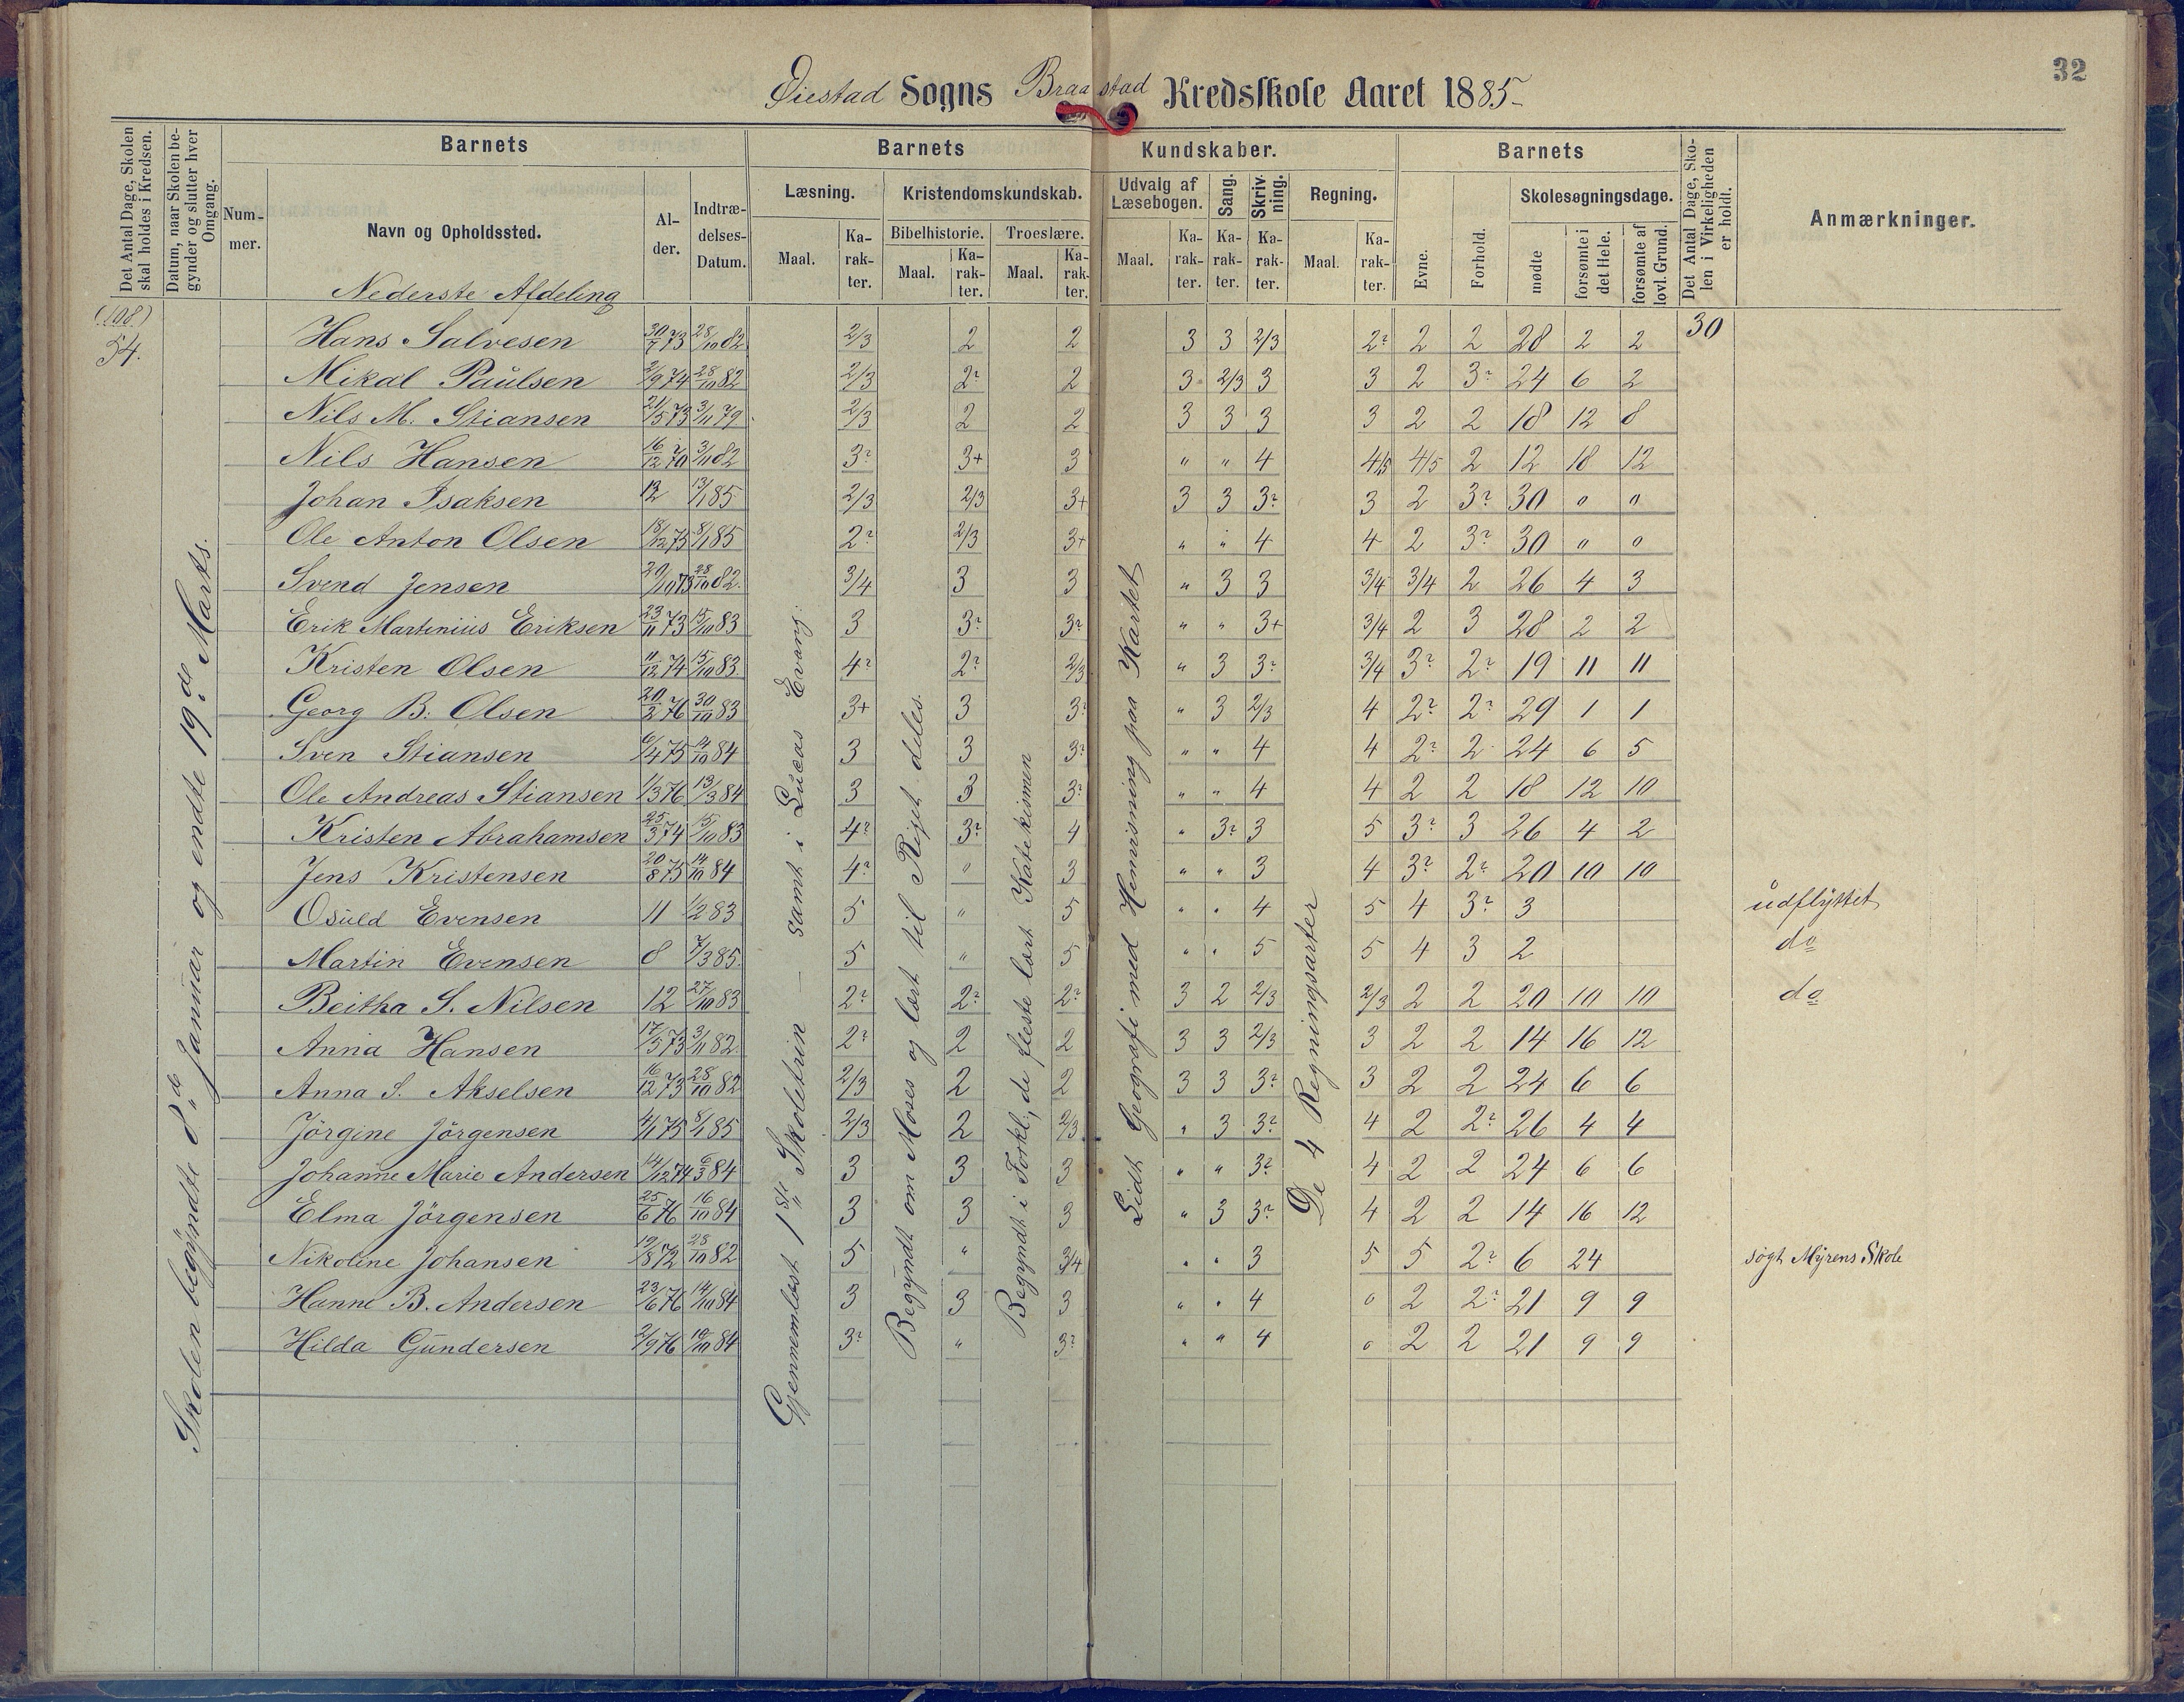 32
Øiestad Sogns Braastad Kredsskole Aaret 1885
Det Antal Dage, Skolen skal holdes i Kredsen.
Datum, naar Skolen begynder og slutter hver Omgang.
Barnets
Nummer.
Navn og Opholdssted.
Alder.
Indtrædelses-Datum.
Barnets Kundskaber.
Læsning.
Maal. Karakter.
Kristendomskundskab.
Bibelhistorie. Troeslære.
Maal. Karakter. Maal. Karakter.
Udvalg af Læsebogen.
Maal. Karakter.
Sang. Karakter.
Skrivning. Karakter.
Regning.
Maal. Karakter.
Barnets
Evne. Forhold.
Skolesøgningsdage.
mødte forsømte i det Hele. forsømte af lovl. Grund.
Det Antal Dage, Skolen i Virkeligheden er holdt.
Anmærkninger.
Nederste Afdeling
(108)
54.
Skolen begyndte 8de Januar og endte 19de Marts.
Gjennemlæst 1ste Skoletrin – samt i Lucas Evang:
Begyndt om Moses og lært til Riget deles.
Begyndt i Forkl;, de fleste lært Katekismen
Lidt Geografi med Henvisning paa Kartet
De 4 Regningsarter
Hans Salvesen 30/7 73 28/10 82 2/3 2 2 3 3 2/3 2? 2 2 28 2 2 30
Mikal Paulsen 2/9 74 28/10 82 2/3 2? 2 3 2/3 3 3 2 3? 24 6 2
Nils M. Stiansen 21/5 73 3/11 79 2/3 2 2 3 3 3 3 2 2 18 12 8
Nils Hansen 16/12 70 3/11 82 3? 3+ 3 " " 4 4/5 4/5 2 12 18 12
Johan Isaksen 12 13/1 85 2/3 2/3 3+ 3 3 3? 3 2 3? 30 " "
Ole Anton Olsen 18/12 75 8/1 85 2? 2/3 3+ " " 4 4 2 3? 30 " 0
Svend Jensen 20/10 73 28/10 82 3/4 3 3 " 3 3 3/4 3/4 2 26 4 3
Erik Martinius Eriksen 23/11 73 15/10 83 3 3? 3? " " 3+ 3/4 2 3 28 2 2
Kristen Olsen 11/12 74 15/10 83 4? 2? 2/3 " 3 3? 3/4 3? 2? 19 11 11
Georg B: Olsen 20/2 76 30/10 83 3+ 3 3? " 3 2/3 4 2? 2? 29 1 1
Sven Stiansen 6/4 75 14/10 84 3 3 3? " " 4 4 2? 2 24 6 5
Ole Andreas Stiansen 1/3 76 13/3 84 3 3 3? " " 4 4 2 2 18 12 10
Kristen Abrahamsen 25/3 74 15/10 83 4? 3? 4 " 3? 3 5 3? 3 26 4 2
Jens Kristensen 20/8 75 14/10 84 4? " 3 " " 3 4 3? 2? 20 10 10
Osuld Evensen 11 1/2 83 5 " 5 " " 4 5 4 3? 3 udflyttet
Martin Evensen 8 7/3 85 5 " 5 " " 5 5 4 3 2 do
Beitha S. Nilsen 12 27/10 83 2? 2? 2? 3 2 2/3 2/3 2 2 20 10 10 do
Anna Hansen 17/5 73 3/11 82 2? 2 2 3 3 2/3 3 2 2 14 16 12
Anna S. Akselsen 16/12 73 28/10 82 2/3 2 2 3 3 3? 3 2 2 24 6 6
Jörgine Jörgensen 4/1 75 8/1 85 2/3 2 2/3 " 3 3? 4 2 2? 26 4 4
Johanne Marie Andersen 14/12 74 6/3 84 3 3 3 " " 3? 4 2 2 24 6 6
Elma Jörgensen 25/6 76 16/10 84 3 3 3 " 3 3? 4 2 2 14 16 12
Nikoline Johansen 19/8 72 28/10 82 5 " 3/4 " " 3 5 5 2? 6 24 søgt Myrens Skole
Hanne B. Andersen 23/6 76 14/10 84 3 3 3 " " 4 0 2 2? 21 9 9
Hilda Gundersen 2/9 76 10/10 84 3? " 3? " " 4 0 2 2 21 9 9